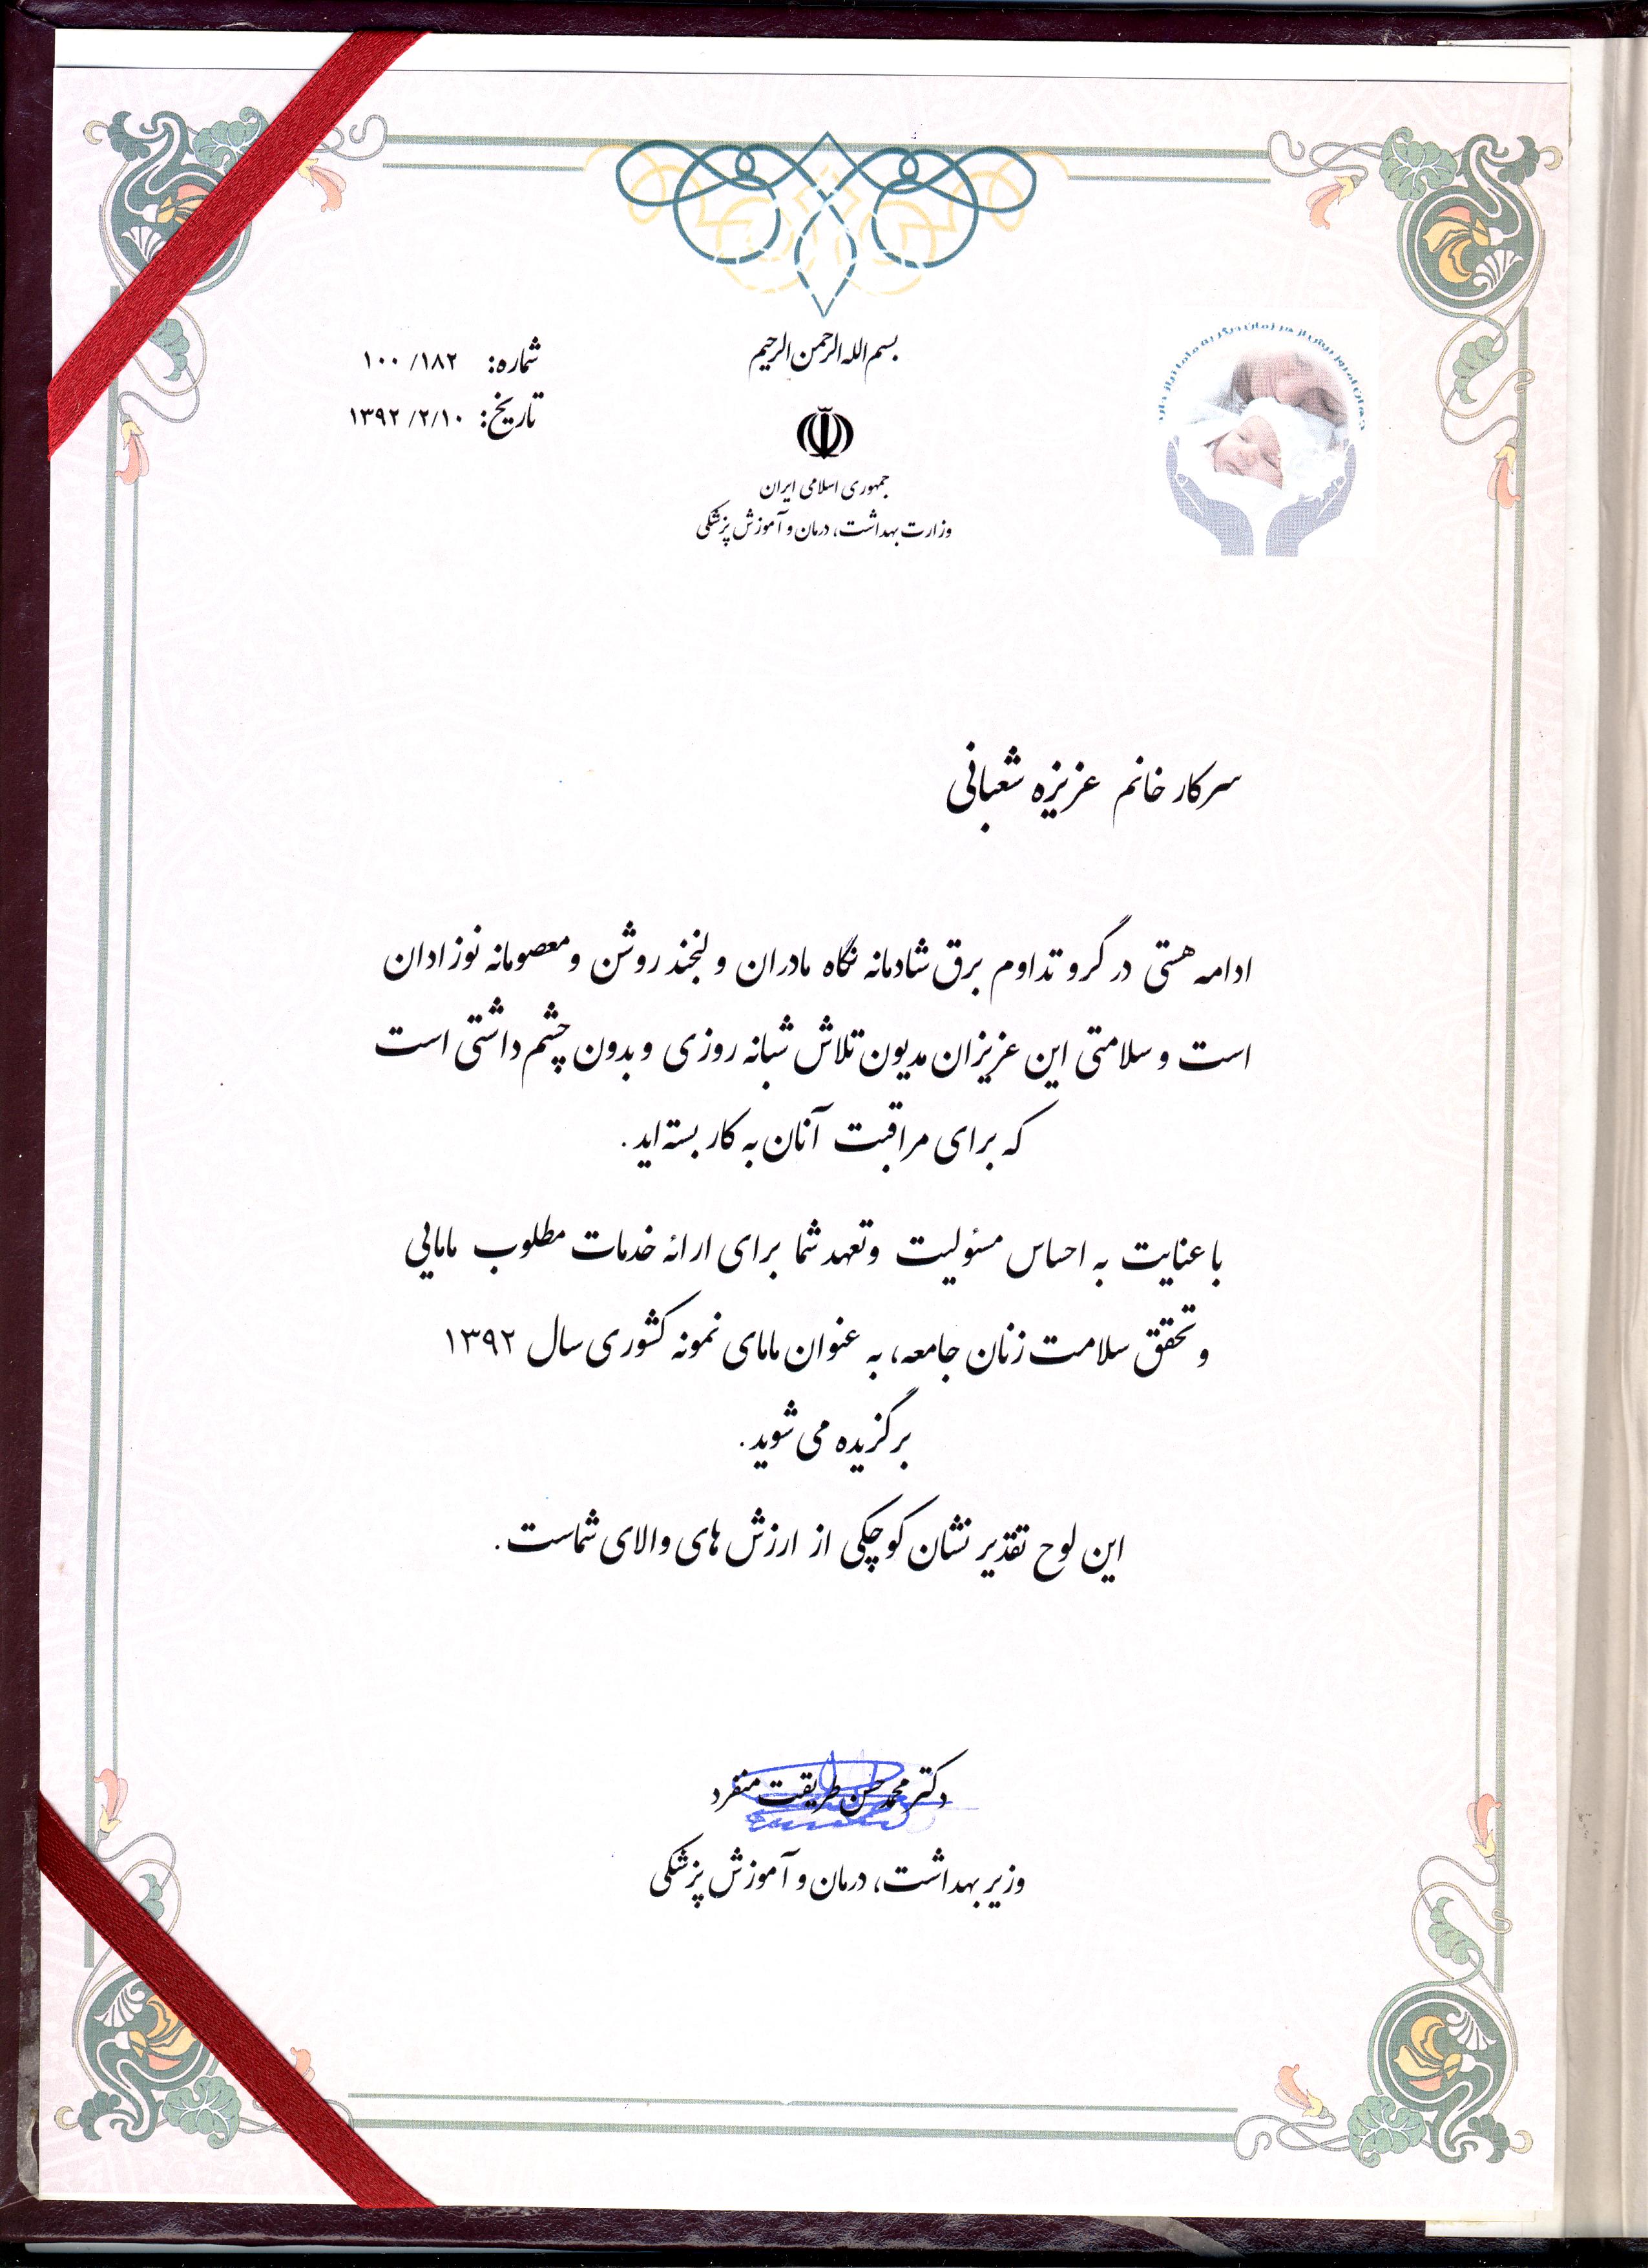 بسم الله الرحمن الرحیم
جمهوری اسلامی ایران
وزارت بهداشت، درمان و آموزش پزشکی
شماره: ۱۰۰/۱۸۲
تاریخ: ۱۳۹۲/۲/۱۰
جهان امروز بیش از هر زمان دیگر به ماما نیاز دارد
سرکار خانم عزیزه شعبانی
ادامه هستی در گرو تداوم برق شادمانه نگاه مادران و لبخند روشن و معصومانه نوزادان
است و سلامتی این عزیزان مدیون تلاش شبانه روزی و بدون چشم داشتی است
که برای مراقبت آنان به کار بسته اید.
با عنایت به احساس مسئولیت و تعهد شما برای ارائه خدمات مطلوب مامایی
و تحقق سلامت زنان جامعه، به عنوان مامای نمونه کشوری سال ۱۳۹۲
برگزیده می شوید.
این لوح تقدیر نشان کوچکی از ارزش های والای شماست.
دکتر محمد حسن طریقت منفرد
وزیر بهداشت، درمان و آموزش پزشکی